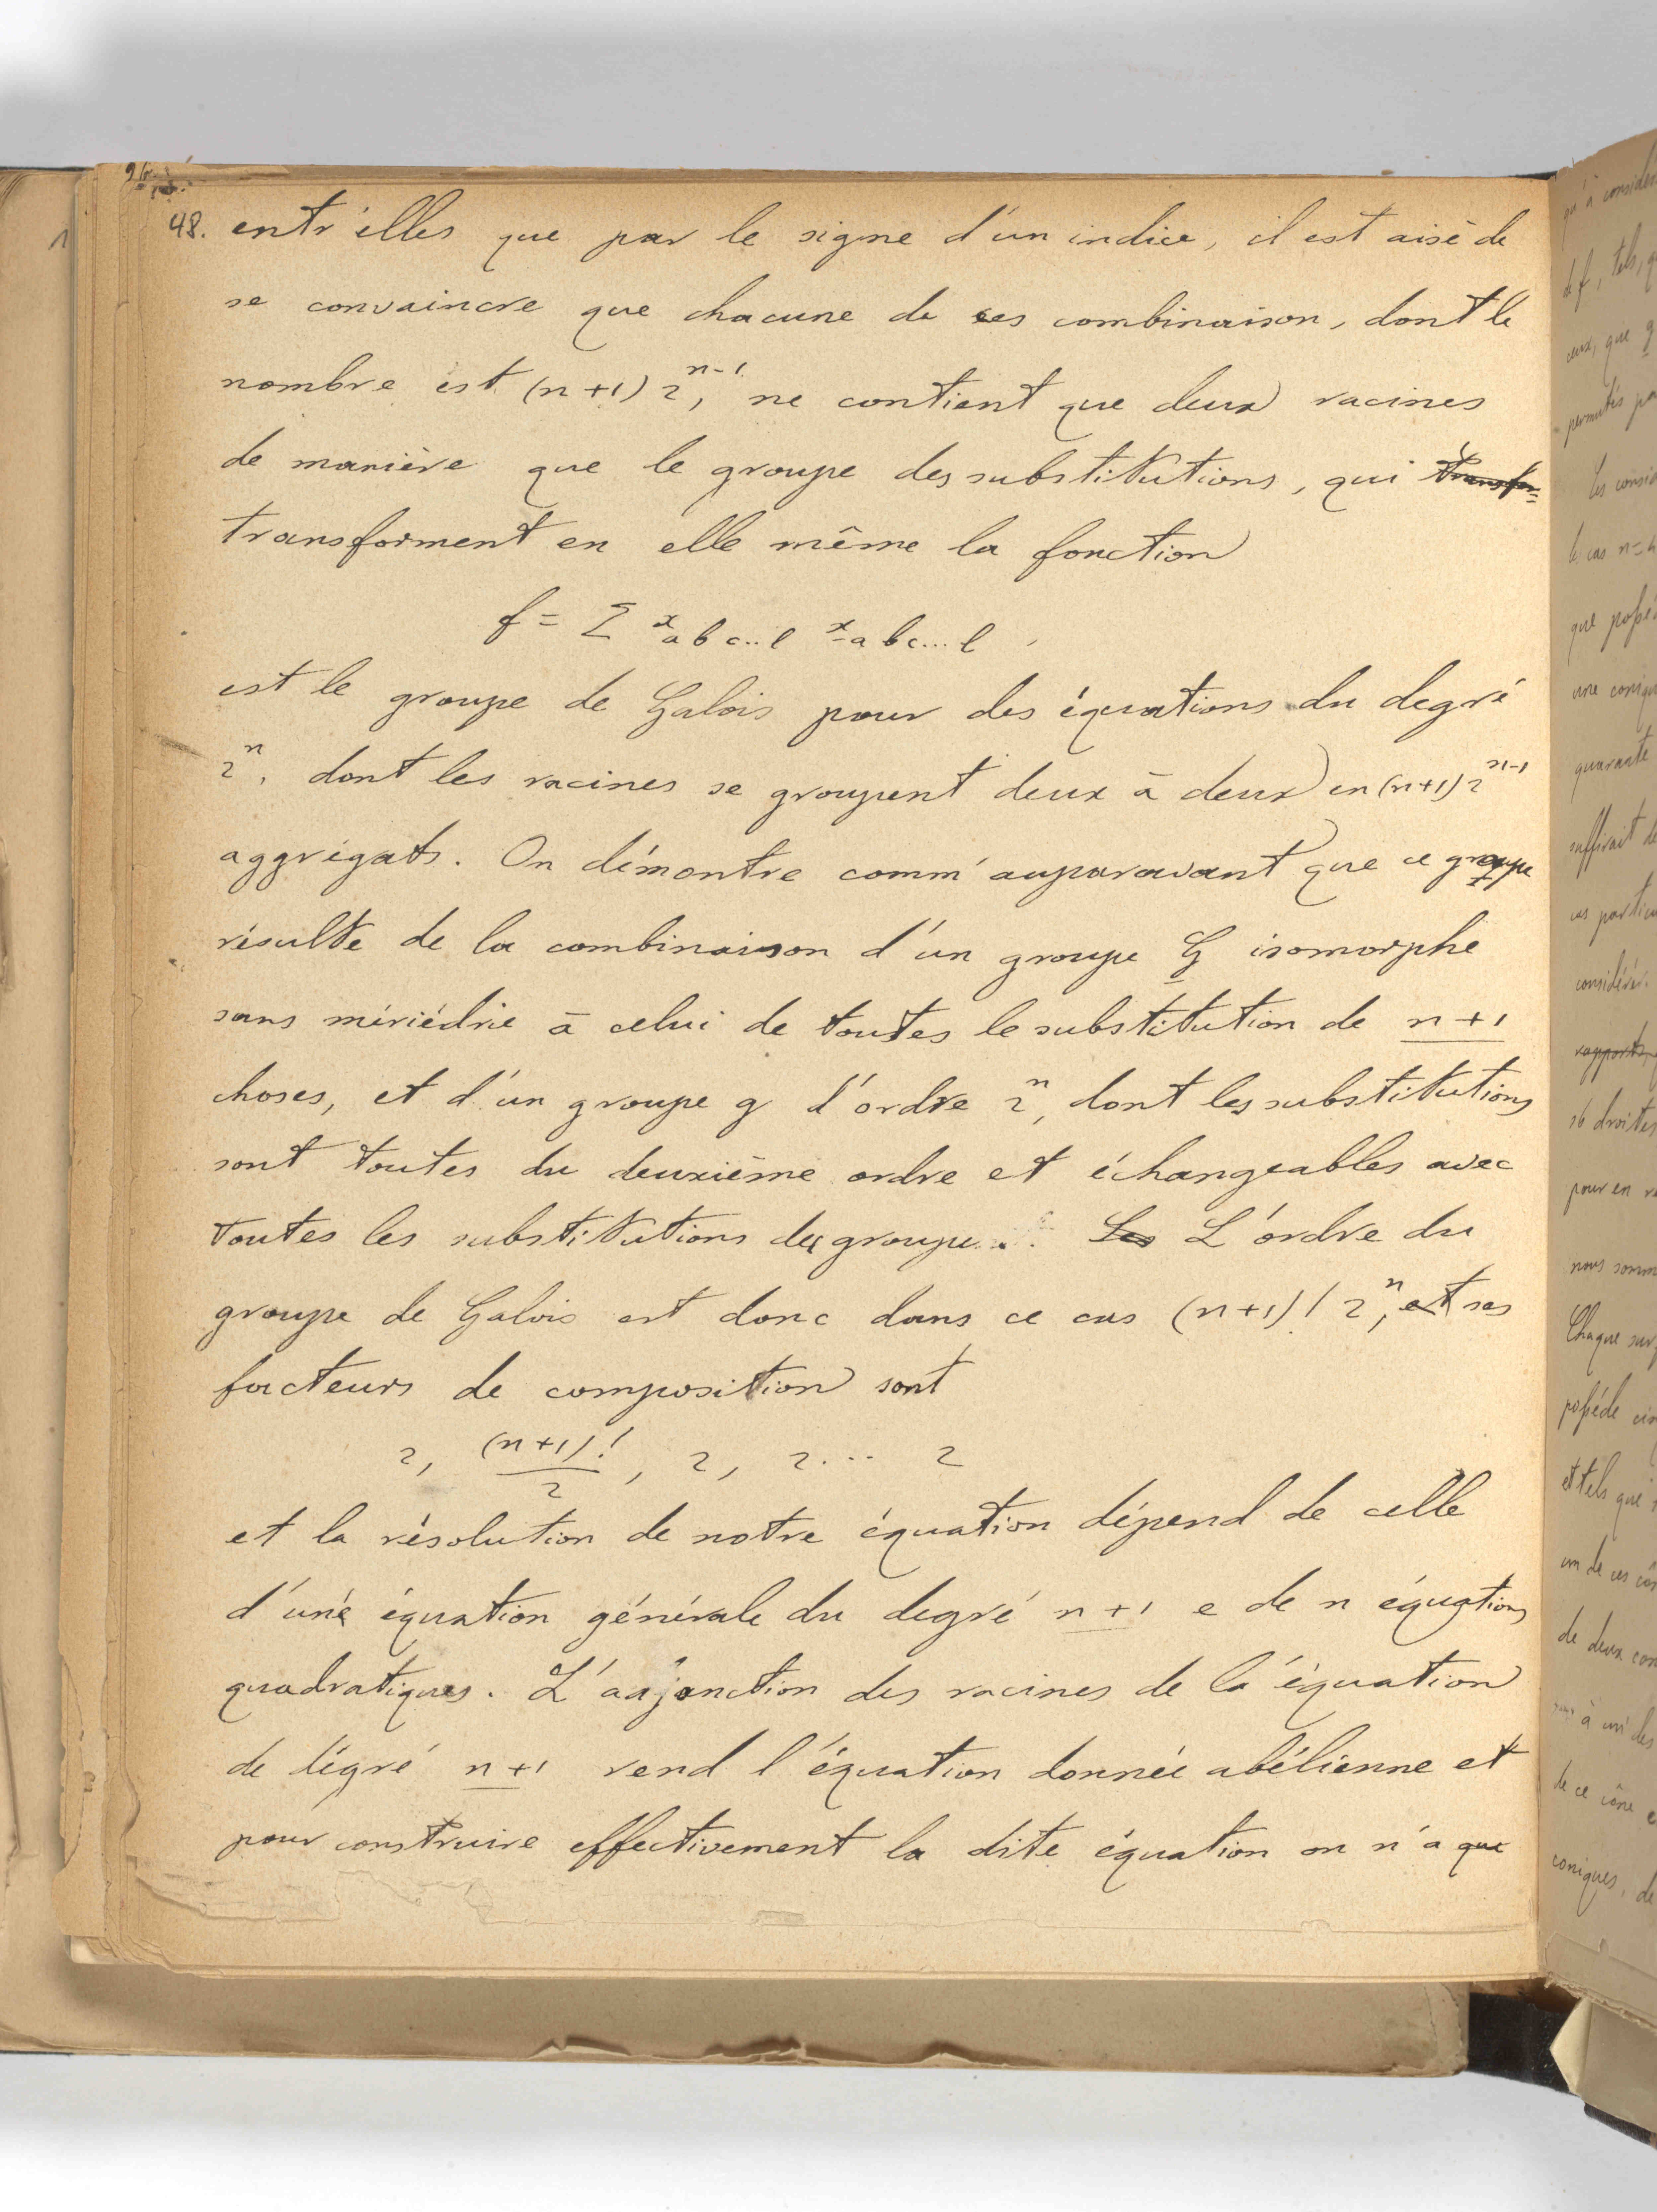 48. entr'elles que par le signe d'un indice, il est aisé de
se convaincre que chacune de ces combinaison, dont le
nombre est (n+1) 2^{n-1}, ne contient que deux racines
de manière que le groupe des substitutions, qui transfor=
transforment en elle même la fonction
f = Σ x_{abc..l} x_{-abc...l} ,
est le groupe de Galois pour des équations du degré
2^n, dont les racines se groupent deux à deux en (n+1) 2^{n-1}
aggrégats. On démontre comm'auparavant que ce groupe
résulte de la combinaison d'un groupe G isomorphe
sans mériédrie à celui de toutes le substitution de n+1
choses, et d'un groupe g d'ordre 2^n, dont les substitutions
sont toutes du deuxième ordre et échangeables avec
toutes les substitutions du groupe. Les L'ordre du
groupe de Galois est donc dans ce cas (n+1)! 2^n, et ses
facteurs de composition sont
2, (n+1)!/2, 2, 2... 2
et la résolution de notre équation dépend de celle
d'une équation générale du degré n+1 e de n équations
quadratiques. L'adjonction des racines de la équation
de dégré n+1 rend l'équation donnée abélienne et
pour construire effectivement la dite équation on n'a que
qu'à
de f, tels, 
ceux, que g
permutés
le cas n=4
que
une
quarante
suffirait de
cas
considérer.
16 droites
pour en
nous
Chaque
possède
et tels que
un de ces
de deux
à un des
de ce cône
coniques, de